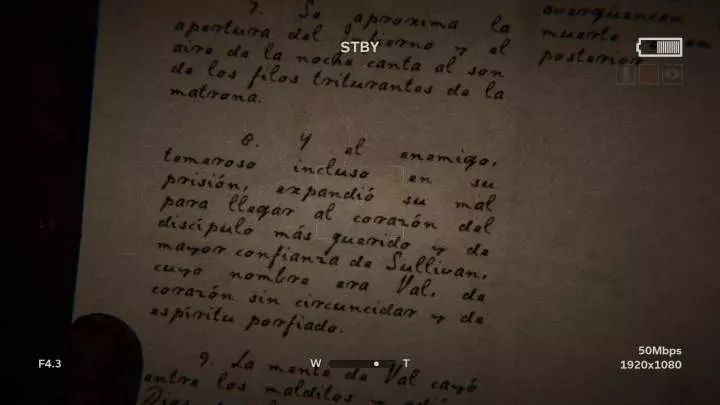 7. Se aproxima la
apertura del infierno y el
aire de la noche canta al son
de los filos triturantes de la
matrona.
8. Y el enemigo,
temeroso incluso en su
prisión, expandió su mal
para llegar al corazón del
discípulo más querido y de
mayor confianza de Sullivan,
cuyo nombre era Val, de
corazón sin circuncidar y de
espíritu porfiado.
9. La mente de Val cayó
entre los malditos y
avergüencen
muerte
posterior
STBY
F4.3
W T
50Mbps
1920x1080